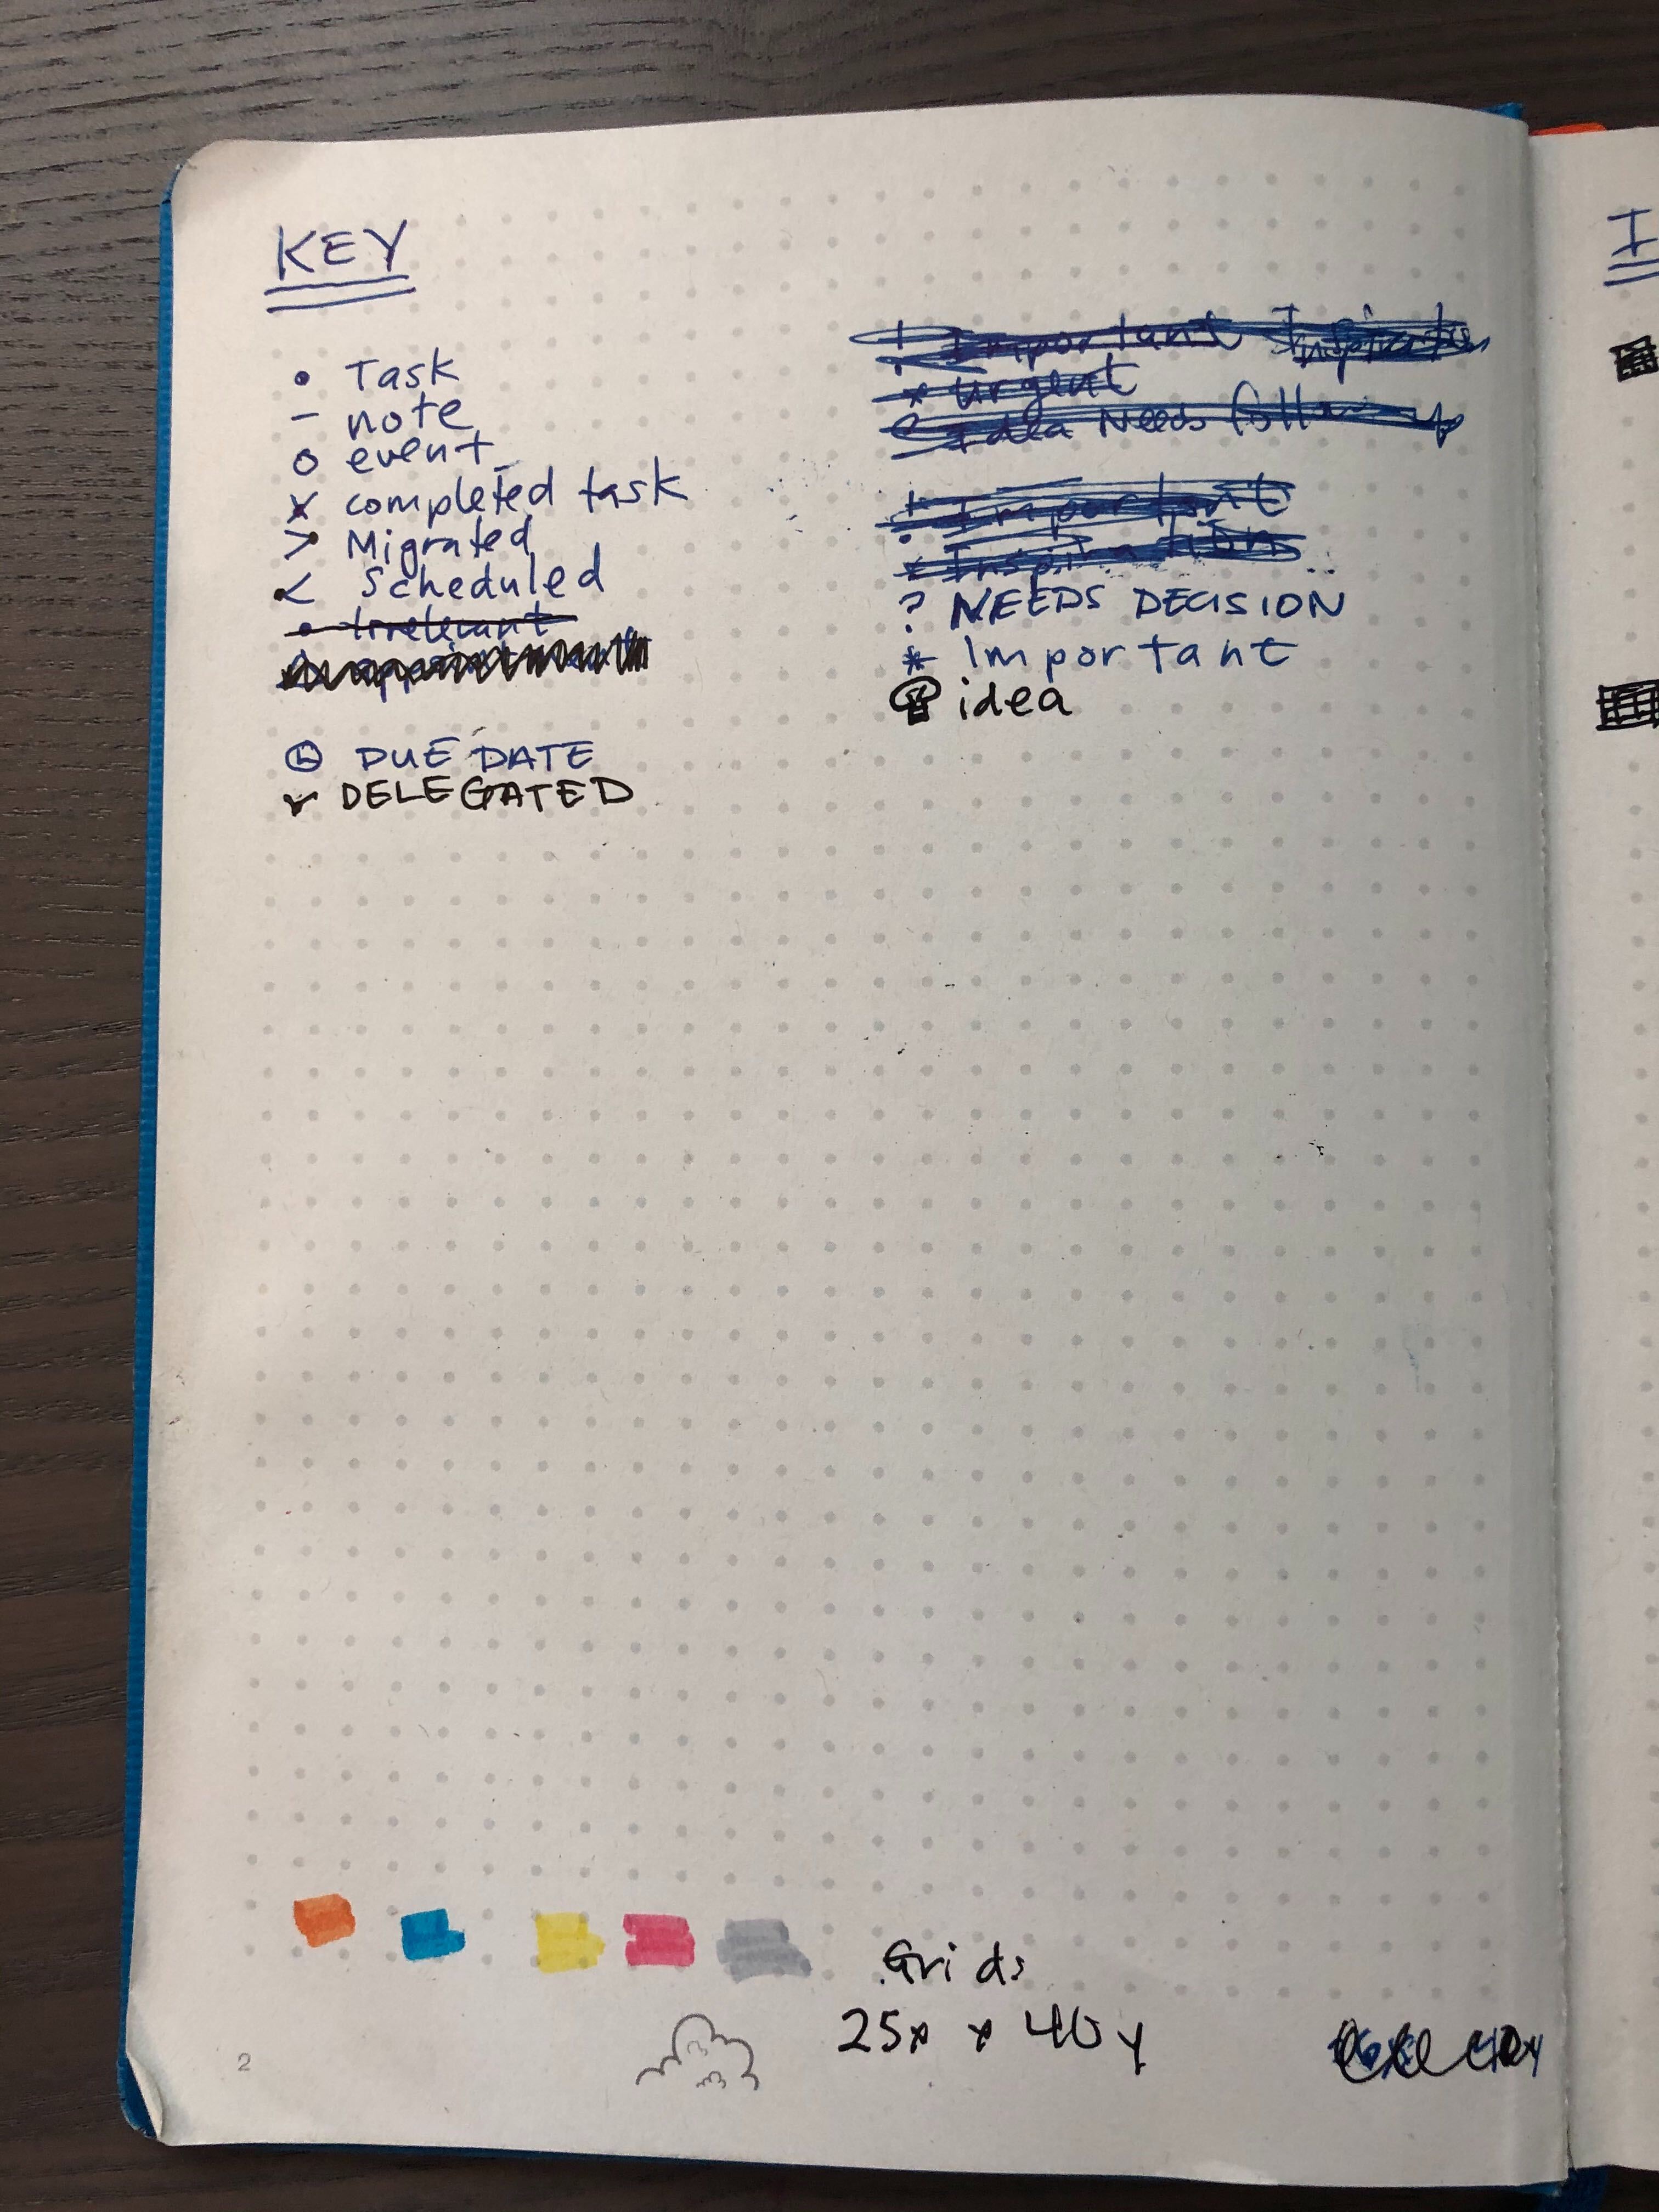 KEY
• Task
– note
o event
x completed task
> Migrated
< Scheduled
• Irrelevant
DUE DATE
v DELEGATED
! Important Inspiration
* urgent
Idea Needs follow up
! Important
* Inspiration
? NEEDS DECISION
* Important
idea
Grids
25x x 40y
2
I